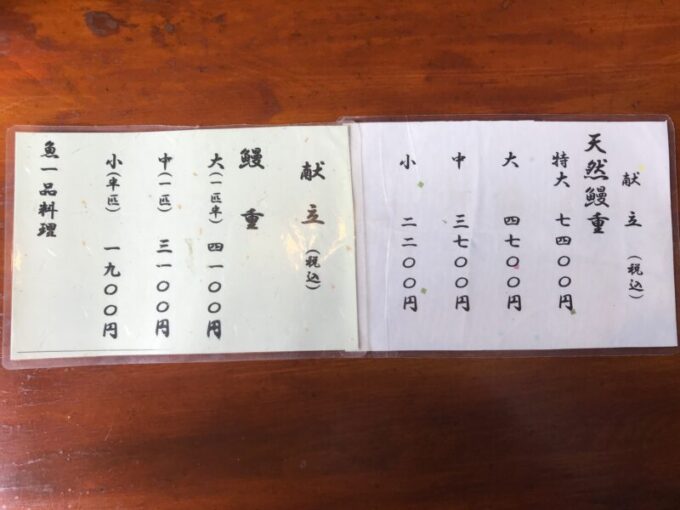 献立（税込）
天然鰻重
特大 七四〇〇円
大 四七〇〇円
中 三七〇〇円
小 二二〇〇円
献立（税込）
鰻重
大（一匹半）四一〇〇円
中（一匹）三一〇〇円
小（半匹）一九〇〇円
魚一品料理